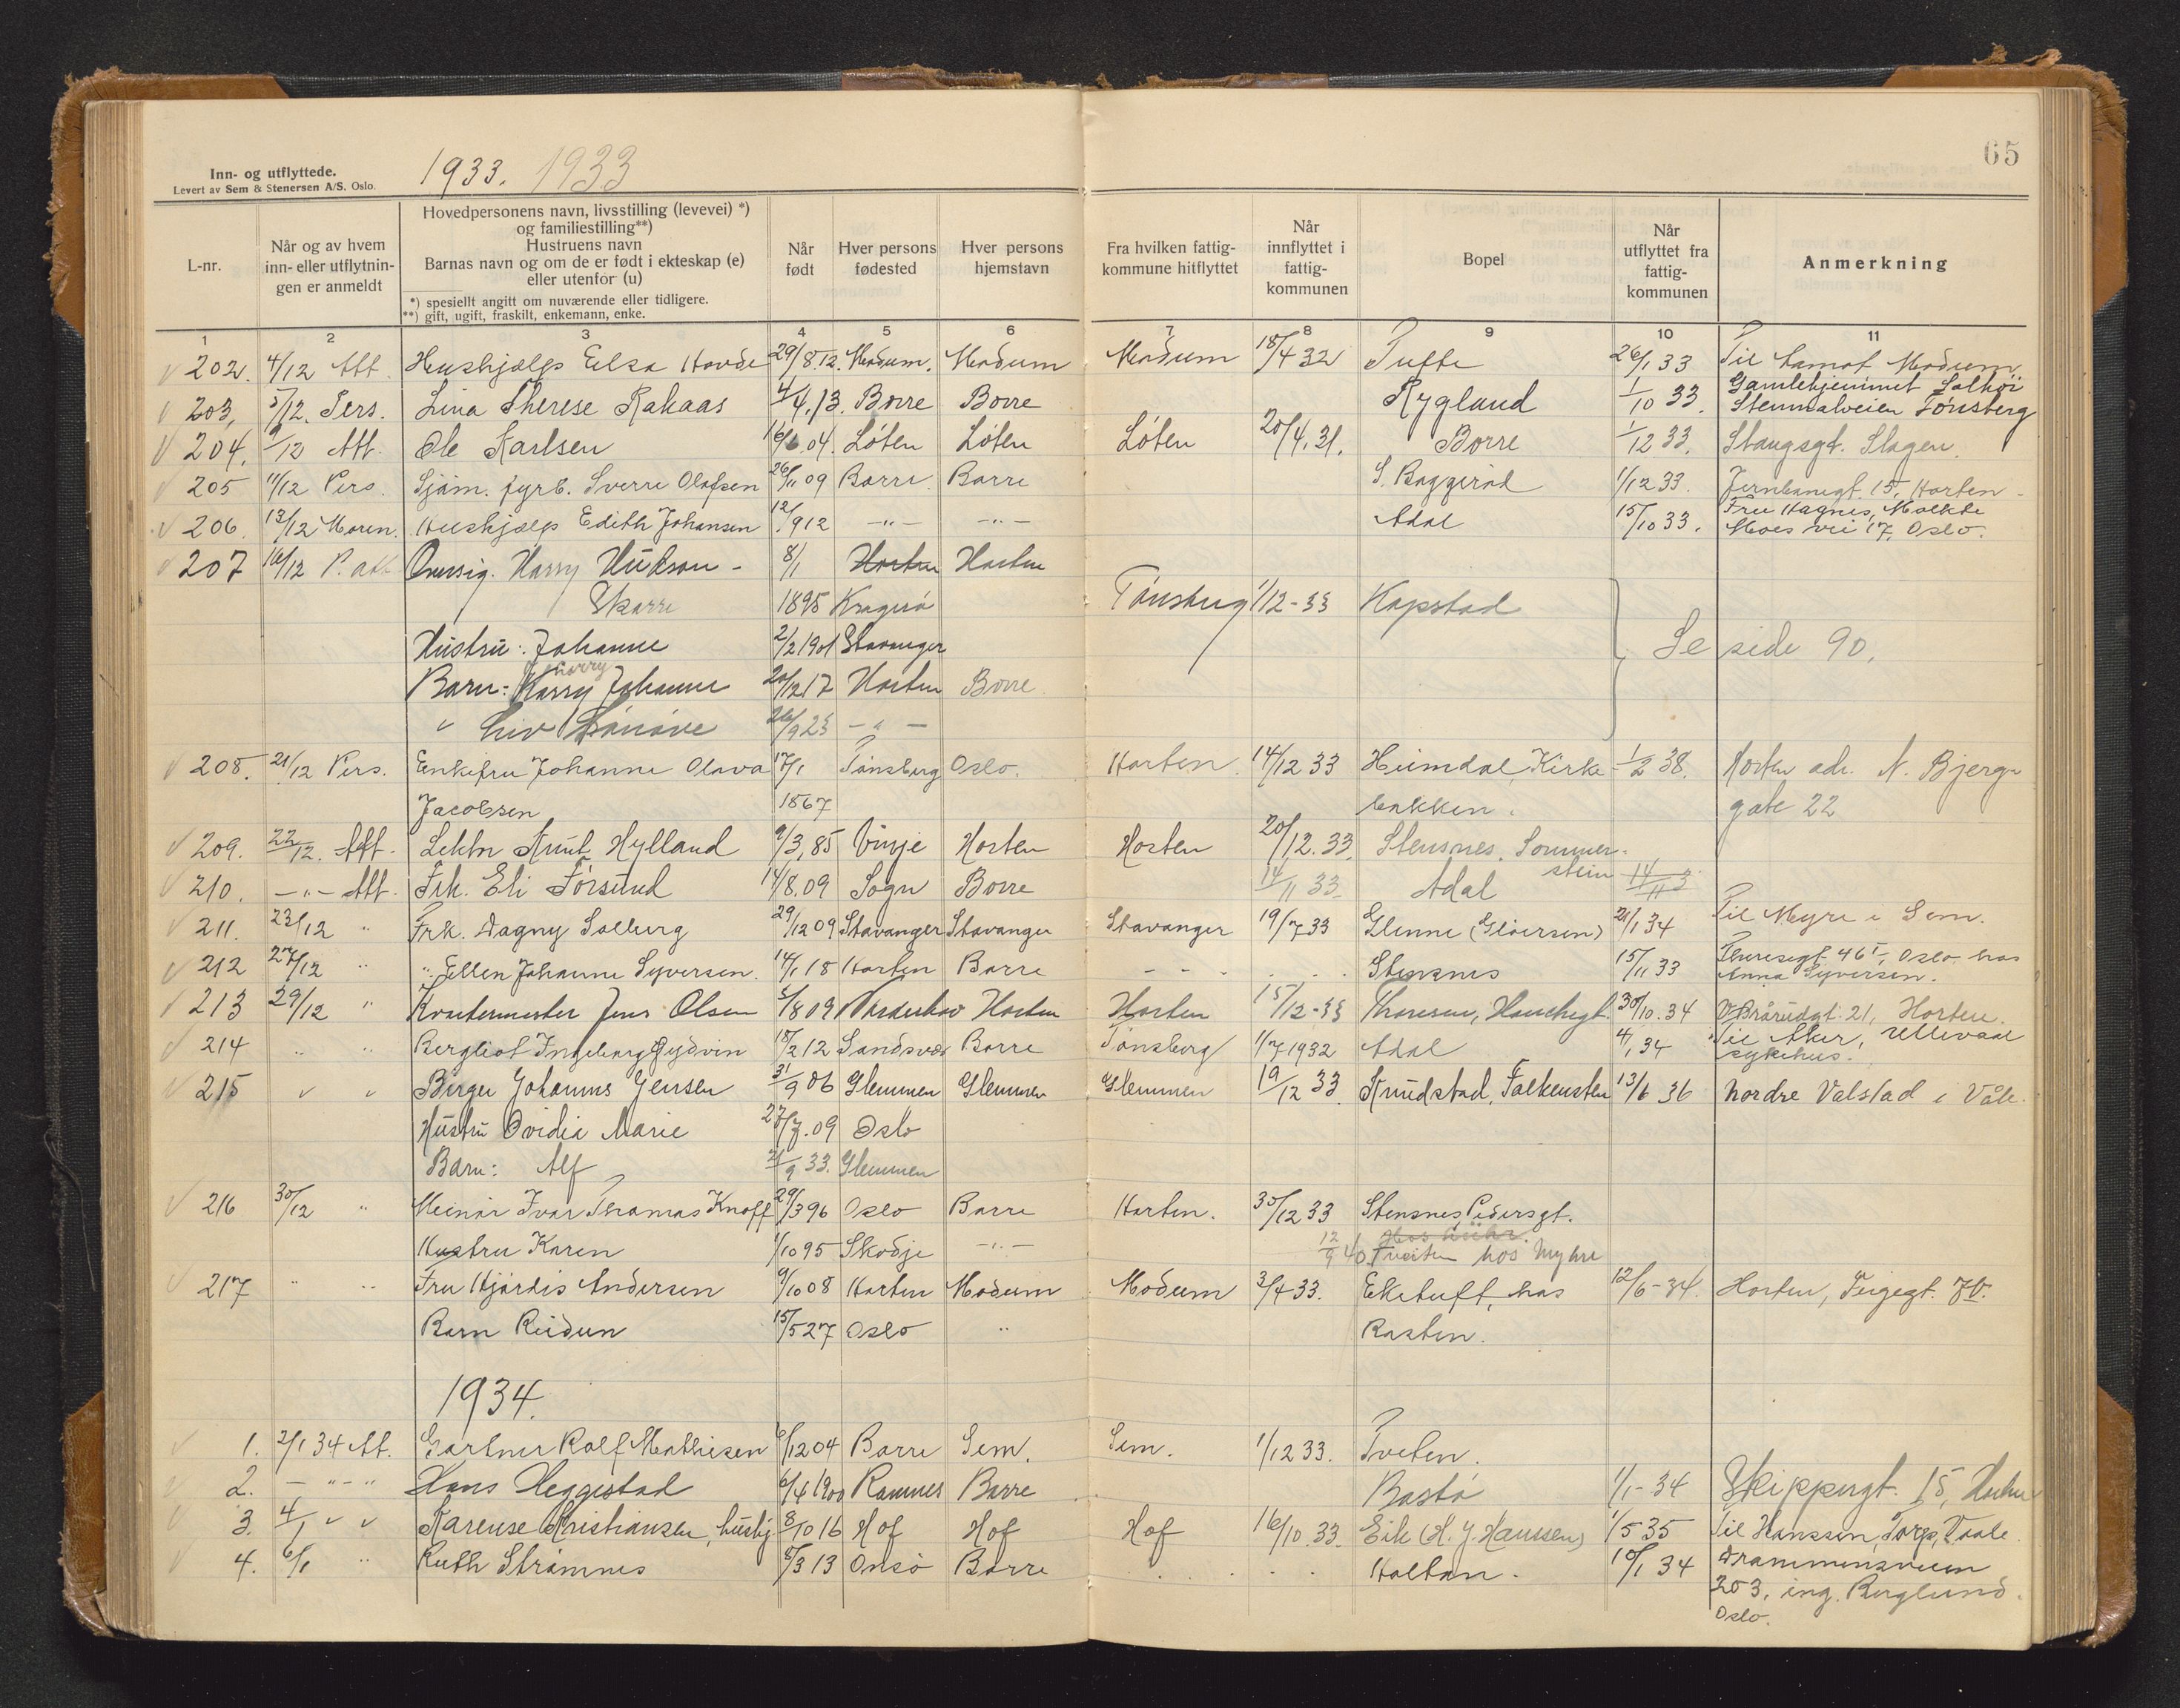 65
Inn- og utflyttede.
Levert av Sem & Stenersen A/S. Oslo.
1933. 1933
L-nr.
Når og av hvem inn- eller utflytnin-gen er anmeldt
Hovedpersonens navn, livsstilling (levevei) *) og familiestilling**) Hustruens navn Barnas navn og om de er født i ekteskap (e) eller utenfor (u)
*) spesiellt angitt om nuværende eller tidligere.
**) gift, ugift, fraskilt, enkemann, enke.
Når født
Hver persons fødested
Hver persons hjemstavn
Fra hvilken fattig-kommune hitflyttet
Når innflyttet i fattig-kommunen
Bopel
Når utflyttet fra fattig-kommunen
Anmerkning
1 2 3 4 5 6 7 8 9 10 11
202. 4/12 Att. Hushjælp Elsa Hovde 29/8.12. Modum. Modum Modum 18/4 32 Tufte 26/1 33 Til Modum
203, 5/12. Pers. Lina Therese Rakaas 4/4.13. Borre Borre Rygland 1/10 33. Gamlehjemmet Solhöi Tønsberg
204. /12 Att. Ole Karlsen 04. Löten Löten Löten 20/4.31. Borre 1/12 33. Stangsgt. Slagen.
205 11/12 Pers. Sjøm. fyrb. Sverre Olafsen 26/11 09 Borre Borre S. Baggeröd 1/12 33. Jernbanegt. 15, Horten
206. 13/12 Moren. Hushjælp Edith Johansen 12/9 12 -"- -"- Adal 15/10 33. Fru Hagnes, Moltke Moes vei 17, Oslo.
207 16/12 P. att. Harry 8/1 Horten Horten
Skarre 1895 Kragerö Tönsberg 1/12-33 Kapstad
Hustru: Johanne 2/2 1901 Stavanger Se side 90.
Barn: Harry Johanne 20/12 17 Horten Borre
" Liv 26/9 23 - " -
208. 21/12 Pers. Enkefru Johanne Olava 17/1 Tønsberg Oslo. Horten. 14/12 33 Heimdal, Kirke- 1/2 38. Horten adr. N. Bjerge-
Jacobsen 1867 bakken. gate 22
209. 22/12. Att. Lektor Knut Hylland 9/3.85 Vinje Horten Horten 20/12.33. Stensnes. Sommer-
stein
210. -"- Att. Frk. Eli Försund 14/8.09 Sogn Borre 14/11 33 Adal 14/11 3
211. 23/12 " Frk. Dagny Solberg 29/12 09 Stavanger Stavanger Stavanger 19/7 33 Glenne (Glöersen) 21/1 34 Til Myre i Sem.
212 27/12 " " Ellen Johanne Syversen. 14/1 18 Horten Borre Stensnes 15/11 33 Theresegt. 46 I, Oslo hos Anna Syversen.
213 29/12 " Jens Olsen 5/8 09 Norderhov Horten Horten 15/12-33 Thoresen, 30/10.34 21, Horten.
214 " " Bergliot Ingeborg Gydvin 18/2 12 Sandsvær Borre Tønsberg 1/7 1932 Adal 4/1 34 Til Aker, Ullevaal sykehus.
215 " " Birger Johannes Jensen 31/9 06 Glemmen Glemmen Glemmen 19/12 33 Knudstad, Falkensten 13/6 36 Nordre Valstad i Våle.
Hustru Ovidia Marie 27/7.09 Oslo
Barn: Alf 21/9 33. Glemmen
216 30/12 " Meinar Ivar Thomas Knoff 29/3 96 Oslo Borre Horten. 30/12 33 Stensnes, Pedersgt.
Hustru Karen 1/10 95 Skodje -"- 12/9 40 Tveiten hos Myhre
217 " " Fru Hjördis Andersen 9/10 08 Horten Modum Modum 3/4 33. Eketuft, hos 12/6-34. Horten, Teigegt.
Barn Reidun 15/5 27 Oslo " Rasten.
1934.
1. 2/1 34 Att. Gartner Rolf Mathisen 6/12 04 Borre Sem. Sem. 1/12 33. Tveten.
2. - " - " Hans Heggestad 6/4 1900 Ramnes Borre Bastö 1/1-34 Skippergt. 15,
3. 4/1 " " Karense Kristiansen, hushj. 8/10 16 Hof Hof Hof 16/10.33. Eik (H. J. Hanssen) 1/5 35 Til Hanssen, Torp, Vaale.
4. 6/1 " Ruth Strömnes 5/3 13 Onsö Borre Holtan. 10/1 34 Drammensveien
203, ing. Berglund.
Oslo.